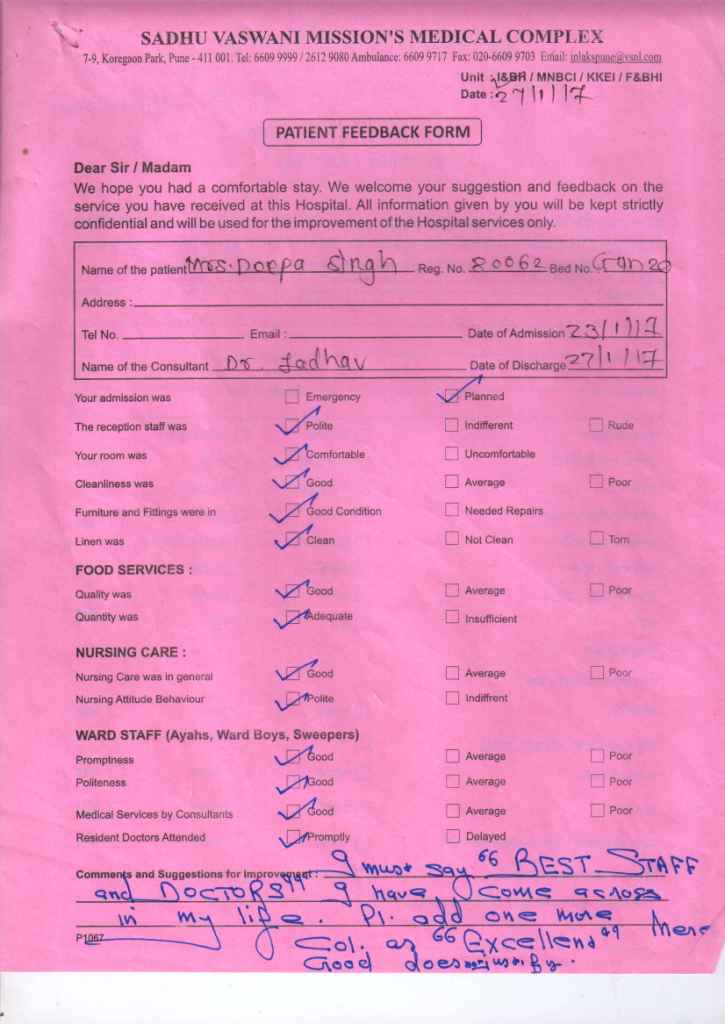 SADHU VASWANI MISSION'S MEDICAL COMPLEX
7-9, Koregaon Park, Pune - 411 001. Tel: 6609 9999 / 2612 9080 Ambulance: 6609 9717 Fax: 020-6609 9703 Email: inlakspune@vsnl.com
Unit : I&BH / MNBCI / KKEI / F&BHI
Date : 27/1/17
PATIENT FEEDBACK FORM
Dear Sir / Madam
We hope you had a comfortable stay. We welcome your suggestion and feedback on the
service you have received at this Hospital. All information given by you will be kept strictly
confidential and will be used for the improvement of the Hospital services only.
Name of the patient Mrs. Deepa Singh Reg. No. 80062 Bed No. Gan 20
Address :
Tel No. Email : Date of Admission 23/1/17
Name of the Consultant Dr. Jadhav Date of Discharge 27/1/17
Your admission was Emergency Planned
The reception staff was Polite Indifferent Rude
Your room was Comfortable Uncomfortable
Cleanliness was Good Average Poor
Furniture and Fittings were in Good Condition Needed Repairs
Linen was Clean Not Clean Torn
FOOD SERVICES :
Quality was Good Average Poor
Quantity was Adequate Insufficient
NURSING CARE :
Nursing Care was in general Good Average Poor
Nursing Attitude Behaviour Polite Indiffrent
WARD STAFF (Ayahs, Ward Boys, Sweepers)
Promptness Good Average Poor
Politeness Good Average Poor
Medical Services by Consultants Good Average Poor
Resident Doctors Attended Promptly Delayed
Comments and Suggestions for Improvement : I must say "BEST STAFF
and DOCTORS" I have come across
in my life. Pl. add one more Mere
P1067 Col. as "Excellend"
Good does